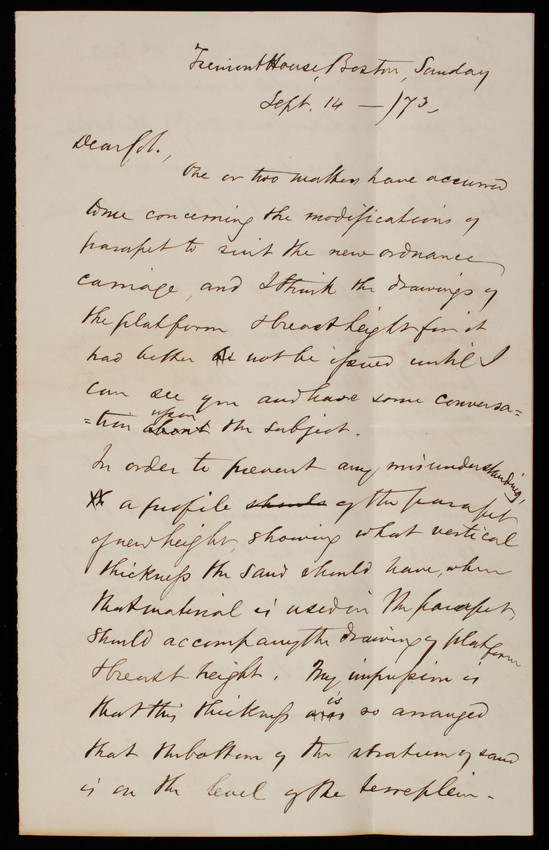 Tremont House, Boston, Sunday
Sept. 14 — /73.
Dear Col.,
One or two matters have occurred
to me concerning the modifications of
parapet to suit the new ordnance
carriage, and I think the drawings of
the platform & breast height for it
had better not be issued until I
can see you and have some conversa=
=tion about upon the subject.
In order to prevent any misunderstanding,
a profile should of the parapet
of new height, showing what vertical
thickness the sand should have, when
that material is used in the parapet,
should accompany the drawing of platform
& breast height. My impression is
that this thickness was is so arranged
that the bottom of the stratum of sand
is on the level of the terreplein.